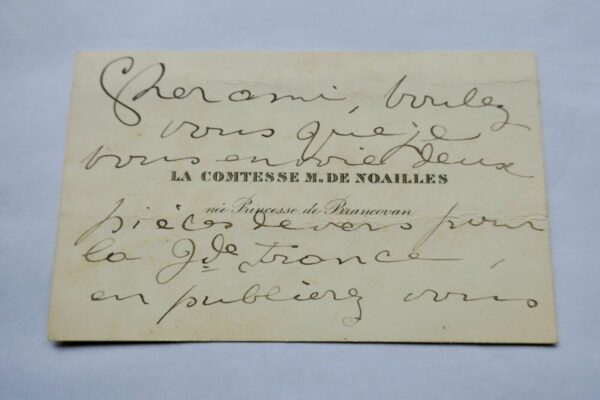 Cher ami, voulez
vous que je
vous envoie deux
LA COMTESSE M. DE NOAILLES
née Princesse de Brancovan
pièces de vers pour
la Gde France,
en publierez vous